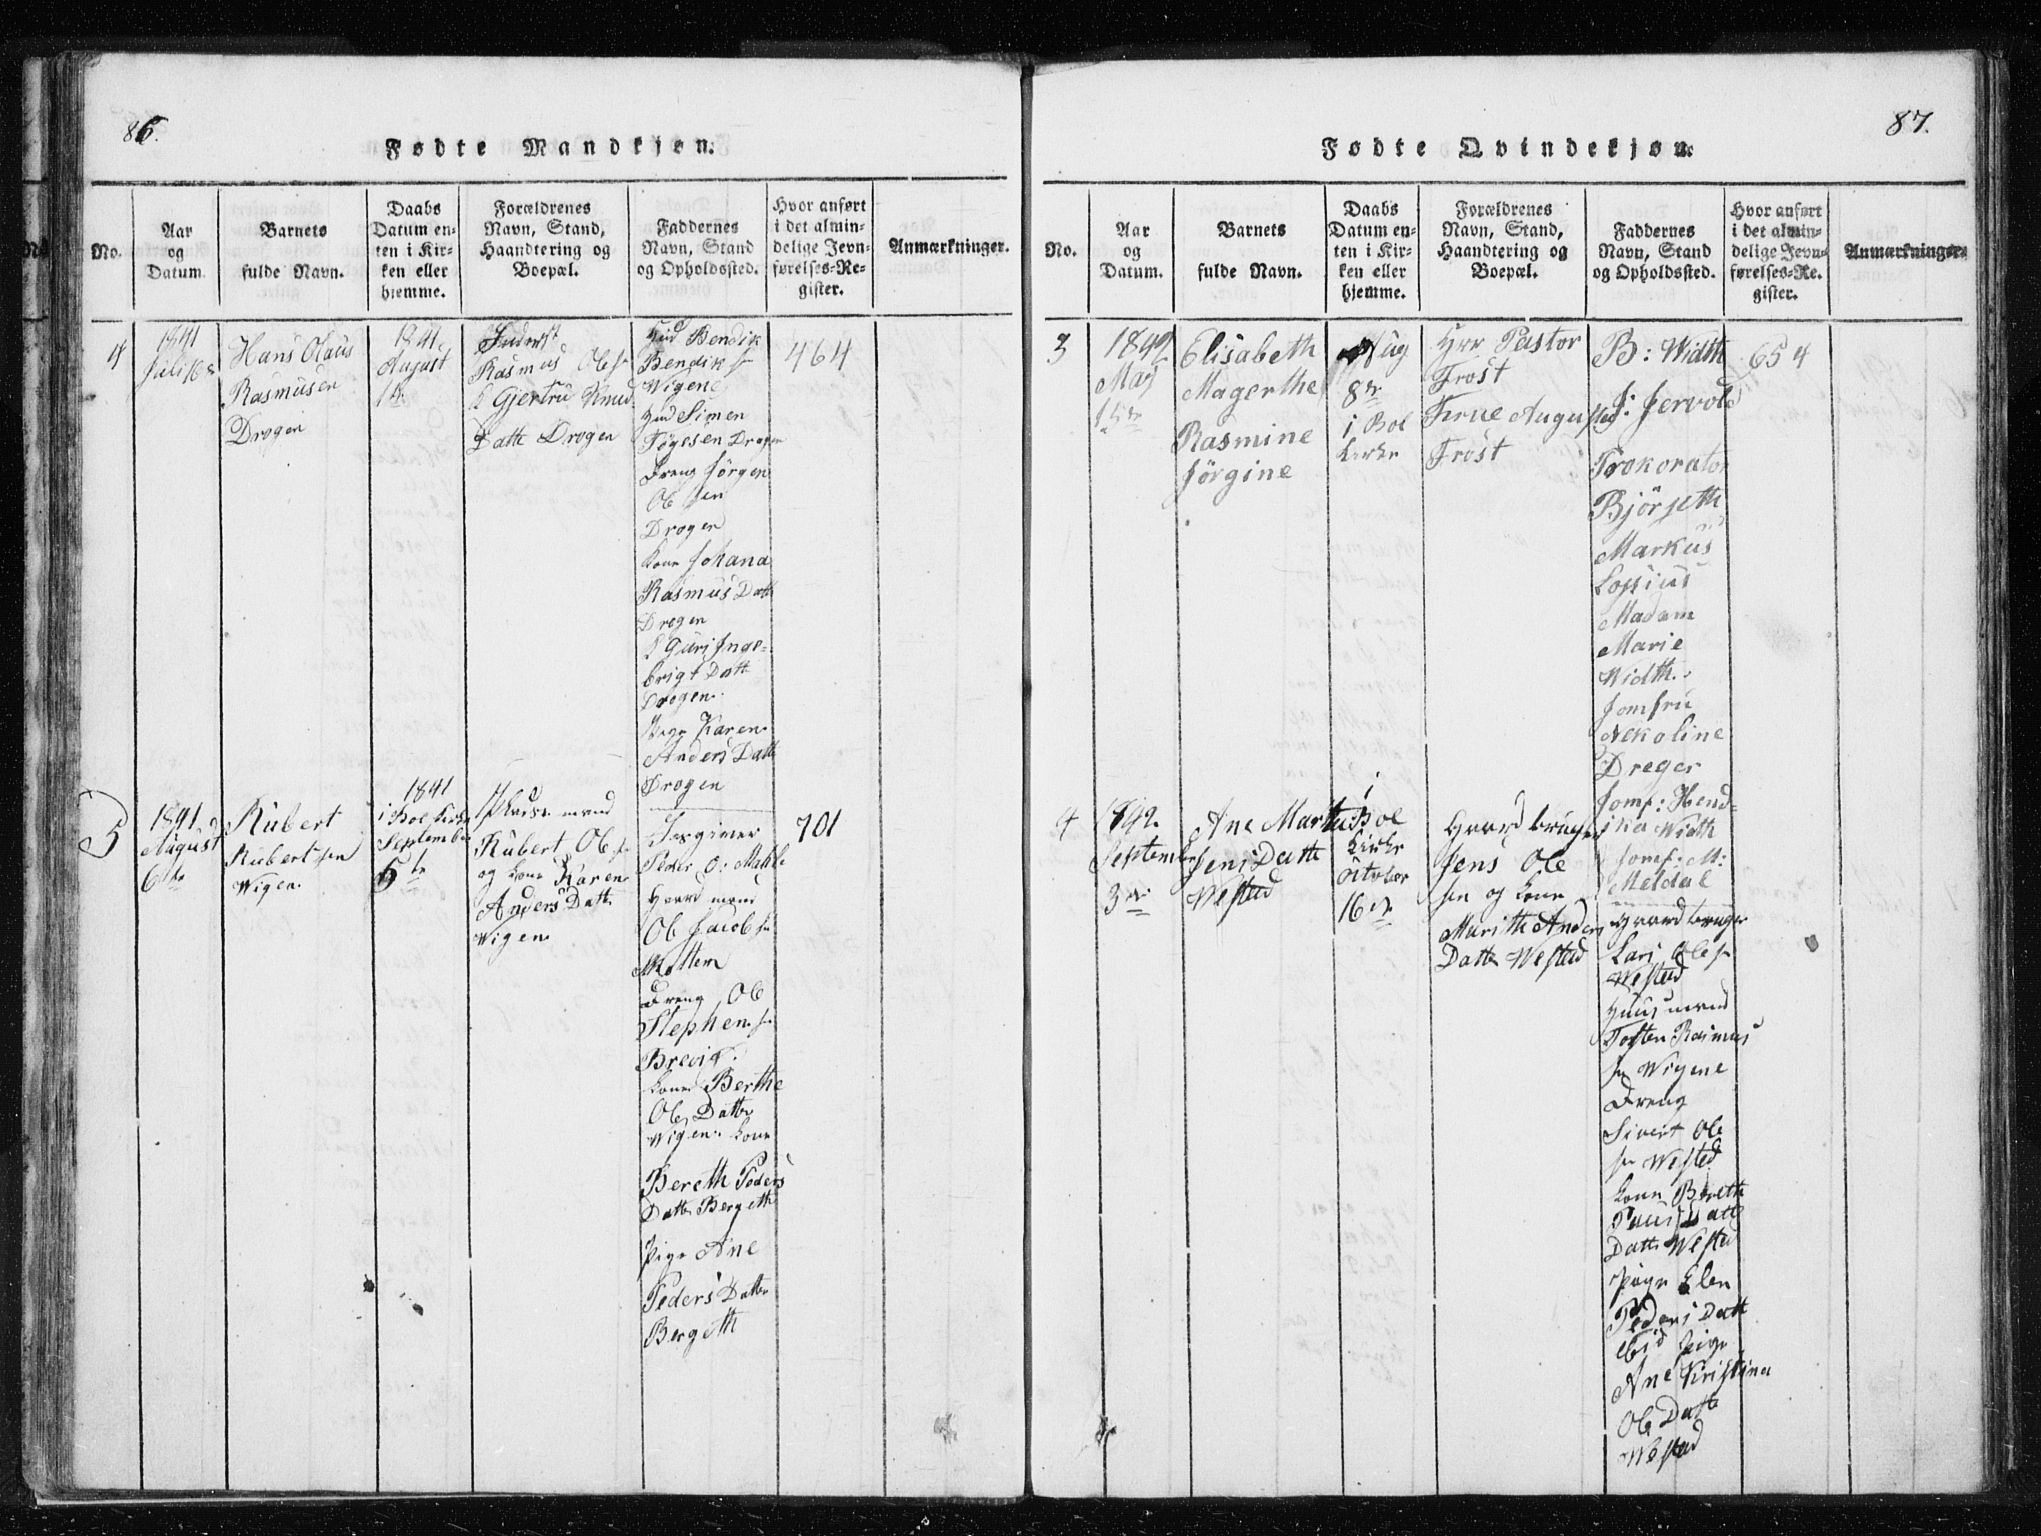 86.
Fødte Mandkjøn.
No.
Aar
og
Datum.
Barnets
fulde Navn.
Daabs
Datum en-
ten i Kir-
ken eller
hjemme.
Forældrenes
Navn, Stand,
Haandtering og
Boepæl.
Faddernes
Navn, Stand
og Opholdssted.
Hvor anført
i det almin-
delige Jevn-
førelses-Re-
gister.
Anmærkninger.
4
1841
Juli 16
Hans Olaus
Rasmusen
Drogen
1841
August
Rasmus Ole sn
Gjertru Knud
Datte Drogen
Bendik
Bendik sn
Wigene
Simen
Drogen
Dreng Jörgen
Ole sen
Drogen
Kone Johana
Rasmus Datt
Drogen
Guri Inge-
brigt Datt
Drogen.
Pige Karen
Anders Datt
Drogen
464
5
1841
August
6te
Rubert
Rubert sen
Wigen
1841
i Boe Kirke
September
5te
Rubert Ole sn
og Kone Karen
Anders Datt
Wigen
Peder O: Mahle
Gaard mand
Ole Jacob sn
Dreng Ole
Stephen sn
Brevig.
Kone Berthe
Ole Datte
Wigen. Kone
Bereth Peders
Datte Bergeth
Pige Ane
Peders Datte
Bergeth
701
87.
Fødte Qvindekjøn.
No.
Aar
og
Datum.
Barnets
fulde Navn.
Daabs
Datum en-
ten i Kir-
ken eller
hjemme.
Forældrenes
Navn, Stand,
Haandtering og
Boepæl.
Faddernes
Navn, Stand
og Opholdssted.
Hvor anført
i det almin-
delige Jevn-
førelses-Re-
gister.
Anmærkninger.
3
1842
Maj
15de
Elisabeth
Magerthe
Rasmine
Jörgine
Aug
8de
i Boe
Kirke
Hrr Pastor
Frost
Frue Augusta
Frost
B: Width
J: Jervold
Prokorator
Björseth
Markus
Lossius
Madam
Marie
Width.
Jomfru
Nekoline
Dreger
Jomf: Hend-
rika Width
Jomf: M:
Meldal
654
4
1842.
September
3die
Ane Martha
Jens Datte
Westad
i
Boe
Kirke
October
16de
Gaard bruger
Jens Ole
sen og Kone
Marith Anders
Datte Westad
Gaard bruger
Lars Ole sn
Westad
Huusmand
Tosten Rasmus
sn Wigene
Dreng
Sivert Ole
sn Westad
Kone Bereth
Datte Westad
Pige Elen
Peders Datt
Eid Pige
Ane Kristina
Ole Datt
Westad